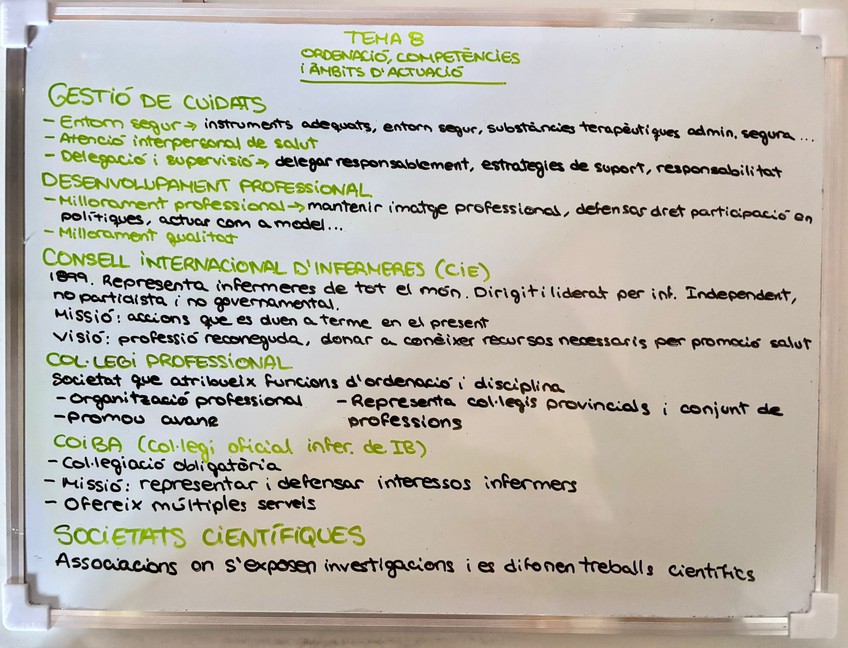 TEMA 8
ORDENACIÓ, COMPETÈNCIES
i ÀMBITS D'ACTUACIÓ
GESTIÓ DE CUIDATS
- Entorn segur → instruments adequats, entorn segur, substàncies terapèutiques admin. segura ...
- Atenció interpersonal de salut
- Delegació i supervisió → delegar responsablement, estrategies de suport, responsabilitat
DESENVOLUPAMENT PROFESSIONAL
- Millorament professional → mantenir imatge professional, defensar dret participació en
polítiques, actuar com a model...
- Millorament qualitat
CONSELL INTERNACIONAL D'INFERMERES (CIE)
1899. Representa infermeres de tot el món. Dirigit i liderat per inf. Independent,
no partidista i no governamental.
Missió: accions que es duen a terme en el present
Visió: professió reconeguda, donar a conèixer recursos necessaris per promoció salut
COL·LEGI PROFESSIONAL
Societat que atribueix funcions d'ordenació i disciplina
- Organització professional - Representa col·legis provincials i conjunt de
- promou avanç professions
COIBA (Col·legi oficial infer. de IB)
- Col·legiació obligatòria
- Missió: representar i defensar interessos infermers
- Ofereix múltiples serveis
SOCIETATS CIENTÍFIQUES
Associacions on s'exposen investigacions i es difonen treballs científics